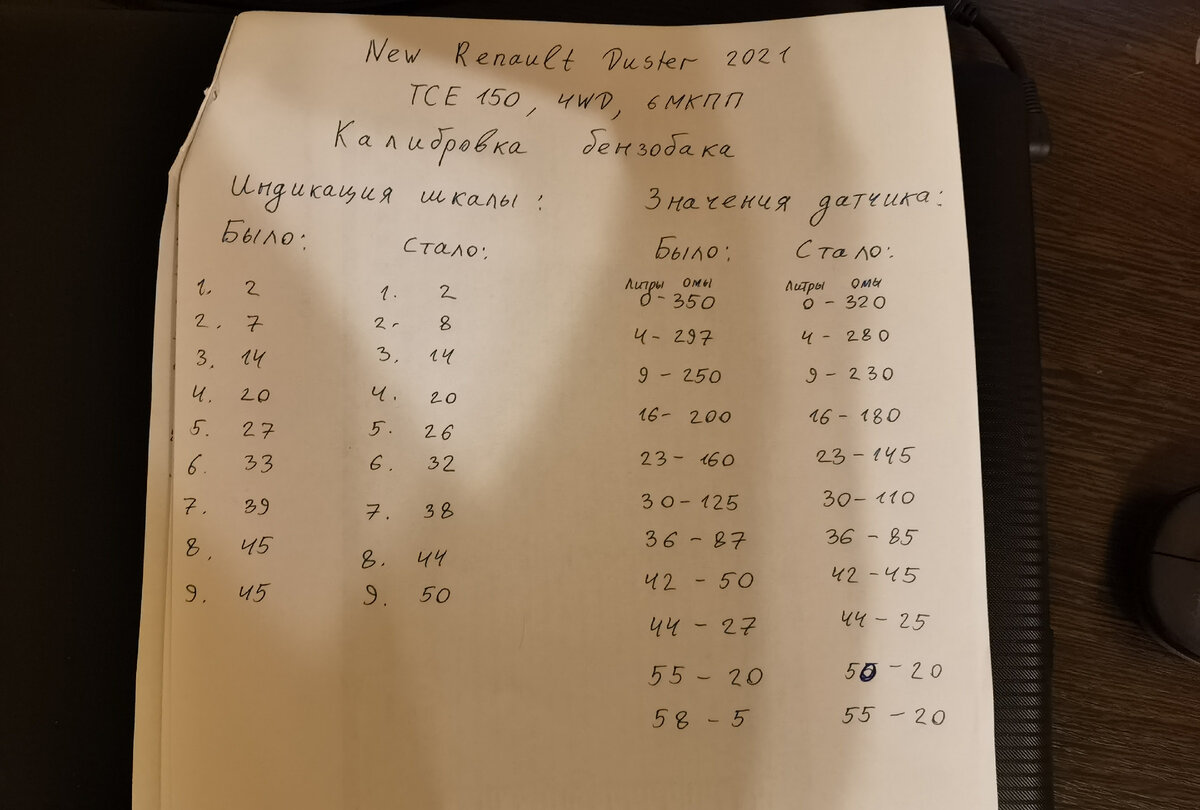 New Renault Duster 2021
TCE 150, 4WD, 6МКПП
Калибровка бензобака
Индикация шкалы: Значения датчика:
Было: Стало: Было: Стало:
литры омы литры омы
1. 2 1. 2 0 - 350 0 - 320
2. 7 2. 8 4 - 297 4 - 280
3. 14 3. 14 9 - 250 9 - 230
4. 20 4. 20 16 - 200 16 - 180
5. 27 5. 26 23 - 160 23 - 145
6. 33 6. 32 30 - 125 30 - 110
7. 39 7. 38 36 - 87 36 - 85
8. 45 8. 44 42 - 50 42 - 45
9. 45 9. 50 44 - 27 44 - 25
55 - 20 50 - 20
58 - 5 55 - 20